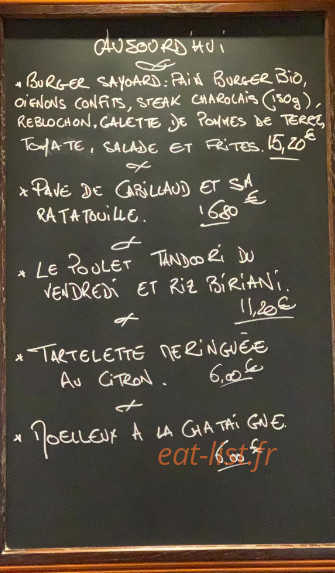 AUJOURD'HUI
* BURGER SAVOYARD: PAIN BURGER BIO,
OIGNONS CONFITS, STEAK CHAROLAIS (150g),
REBLOCHON, GALETTE DE POMMES DE TERRE,
TOMATE, SALADE ET FRITES. 15,20€
* PAVE DE CABILLAUD ET SA
RATATOUILLE. 16,80€
* LE POULET TANDOORI DU
VENDREDI ET RIZ BIRIANI.
11,20€
* TARTELETTE MERINGUÉE
AU CITRON. 6,00€
* MOELLEUX A LA CHATAÎGNE.
eat-list.fr
6,00€